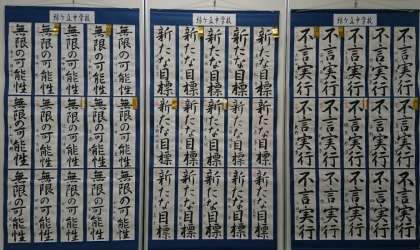 無限の可能性
無限の可能性
無限の可能性
無限の可能性
無限の可能性
無限の可能性
無限の可能性
無限の可能性
無限の可能性
無限の可能性
無限の可能性
無限の可能性
無限の可能性
無限の可能性
無限の可能性
新たな目標
新たな目標
新たな目標
新たな目標
新たな目標
新たな目標
新たな目標
新たな目標
新たな目標
新たな目標
新たな目標
新たな目標
新たな目標
新たな目標
新たな目標
不言実行
不言実行
不言実行
不言実行
不言実行
不言実行
不言実行
不言実行
不言実行
不言実行
不言実行
不言実行
不言実行
不言実行
不言実行